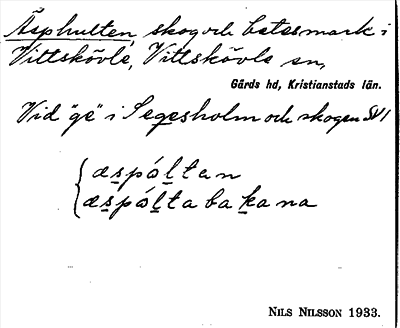 Äsphulten, skog och betesmark i
Vittskövle, Vittskövle sn,
Gärds hd, Kristianstads län.
Vid "ge" i Segesholm och skogen SV
æspóltan
æspóltabakana
NILS NILSSON 1933.